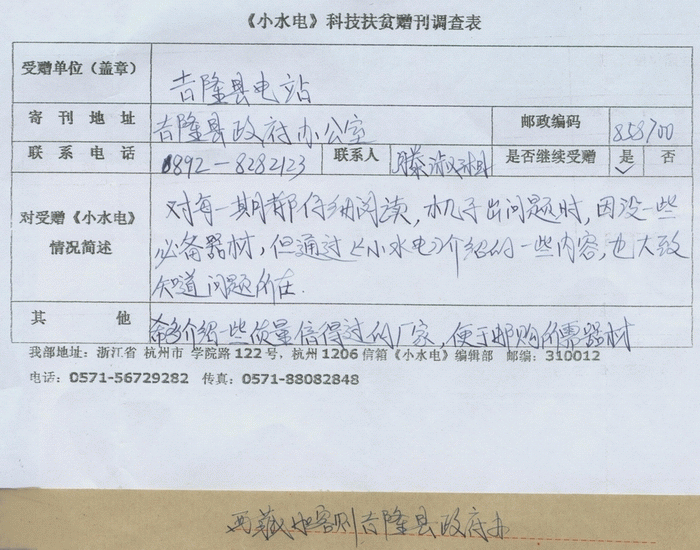 《小水电》科技扶贫赠刊调查表
受赠单位（盖章） 吉隆县电站
寄刊地址 吉隆县政府办公室 邮政编码 858700
联系电话 0892-8282123 联系人 滕淑 是否继续受赠 是 否
对受赠《小水电》情况简述
对每一期都仔细阅读，水机子出问题时，因没一些
必备器材，但通过《小水电》介绍的一些内容，也大致
知道问题所在.
其他 希多介绍一些质量信得过的厂家，便于邮购所需器材
我部地址：浙江省 杭州市 学院路 122 号，杭州 1206 信箱《小水电》编辑部 邮编：310012
电话：0571-56729282 传真：0571-88082848
西藏日客则吉隆县政府办